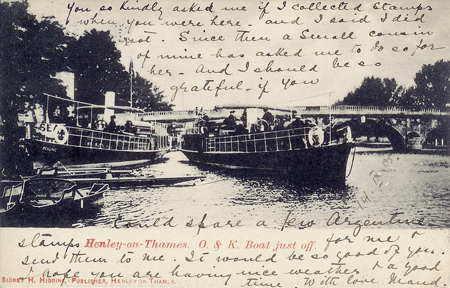 you so kindly asked me if I collected stamps
when you were here. and I said I did
not. Since then a small cousin
of mine has asked me to do so for
her. And I should be so
grateful if you
could spare a few Argentine
stamps for me &
Henley-on-Thames. O. & K. Boat just off.
send them to me. It would be so good of you.
I hope you are having nice weather & a good
time. With love, Maud.
SIDNEY H. HIGGINS, PUBLISHER, HENLEY ON THAMES.